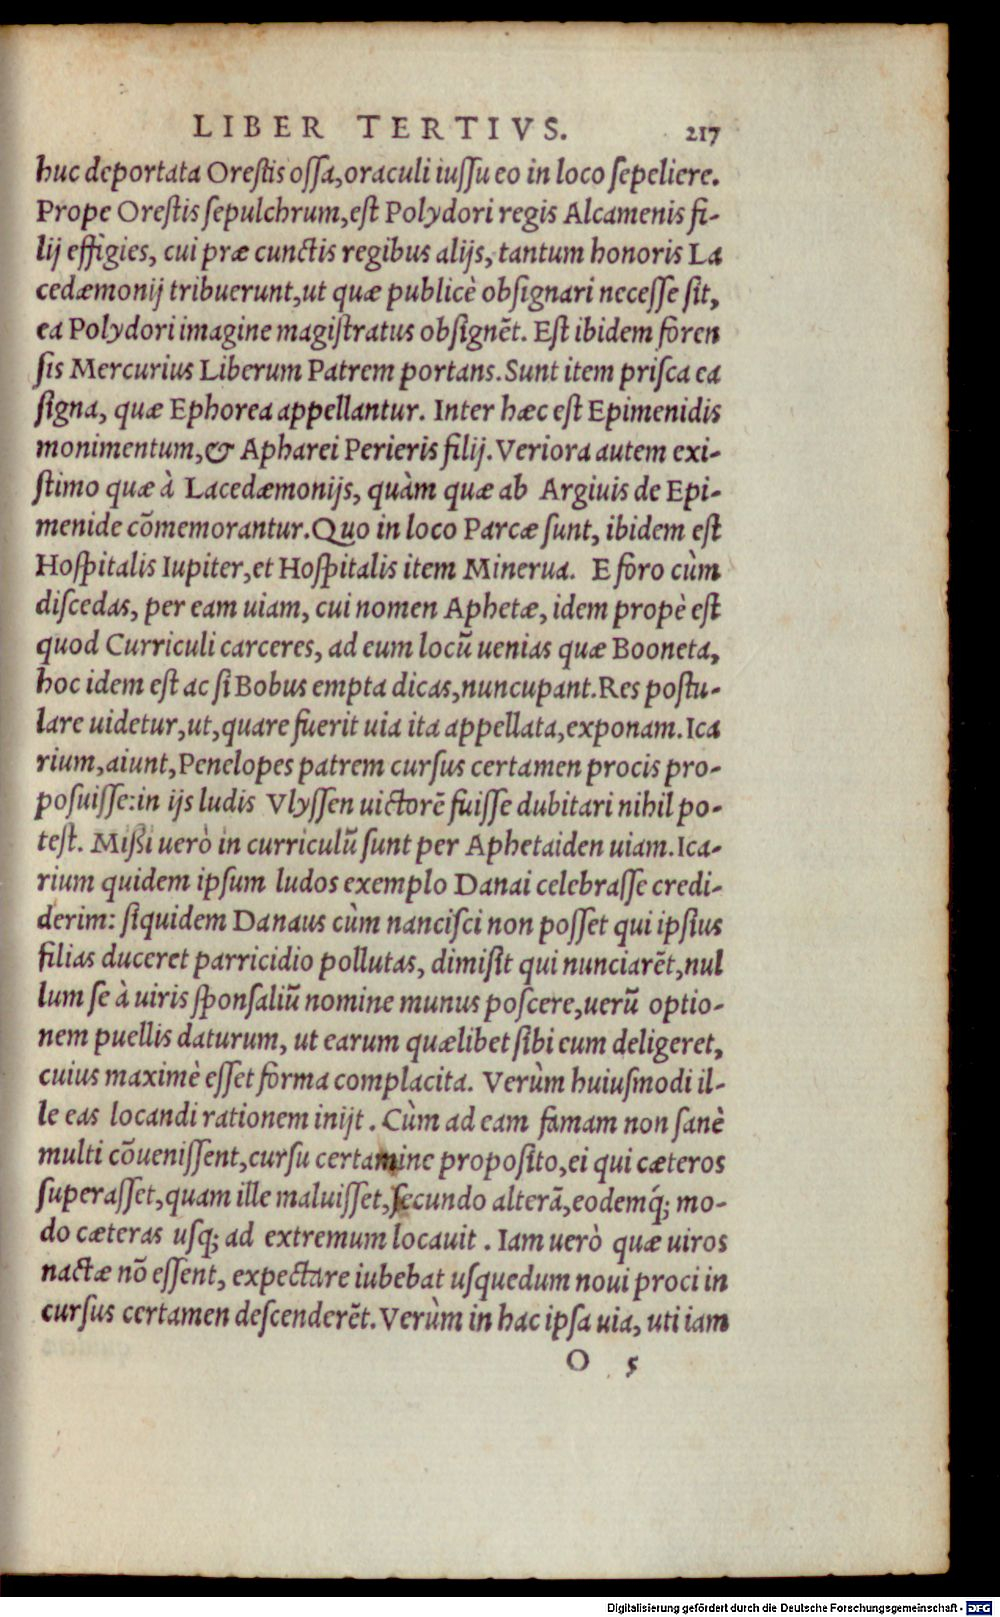 LIBER TERTIVS. 217
huc deportata Orestis ossa, oraculi iussu eo in loco sepeliere.
Prope Orestis sepulchrum, est Polydori regis Alcamenis fi-
lij effigies, cui præ cunctis regibus alijs, tantum honoris La
cedæmonij tribuerunt, ut quæ publicè obsignari necesse sit,
ea Polydori imagine magistratus obsignẽt. Est ibidem foren
sis Mercurius Liberum Patrem portans. Sunt item prisca ea
signa, quæ Ephorea appellantur. Inter hæc est Epimenidis
monimentum, & Apharei Perieris filij. Veriora autem exi-
stimo quæ à Lacedæmonijs, quàm quæ ab Argiuis de Epi-
menide cõmemorantur. Quo in loco Parcæ sunt, ibidem est
Hospitalis Iupiter, et Hospitalis item Minerua. E foro cùm
discedas, per eam uiam, cui nomen Aphetæ, idem propè est
quod Curriculi carceres, ad eum locũ uenias quæ Booneta,
hoc idem est ac si Bobus empta dicas, nuncupant. Res postu-
lare uidetur, ut, quare fuerit uia ita appellata, exponam. Ica
rium, aiunt, Penelopes patrem cursus certamen procis pro-
posuisse: in ijs ludis Vlyssen uictorẽ fuisse dubitari nihil po-
test. Mißi uerò in curriculũ sunt per Aphetaiden uiam. Ica-
rium quidem ipsum ludos exemplo Danai celebrasse credi-
derim: siquidem Danaus cùm nancisci non posset qui ipsius
filias duceret parricidio pollutas, dimisit qui nunciarẽt, nul
lum se à uiris sponsaliũ nomine munus poscere, uerũ optio-
nem puellis daturum, ut earum quælibet sibi eum deligeret,
cuius maximè esset forma complacita. Verùm huiusmodi il-
le eas locandi rationem inijt. Cùm ad eam famam non sanè
multi cõuenissent, cursu certamine proposito, ei qui cæteros
superasset, quam ille maluisset, secundo alterã, eodemq́; mo-
do cæteras usq; ad extremum locauit. Iam uerò quæ uiros
nactæ nõ essent, expectare iubebat usquedum noui proci in
cursus certamen descenderẽt. Verùm in hac ipsa uia, uti iam
O 5
Digitalisierung gefördert durch die Deutsche Forschungsgemeinschaft - DFG